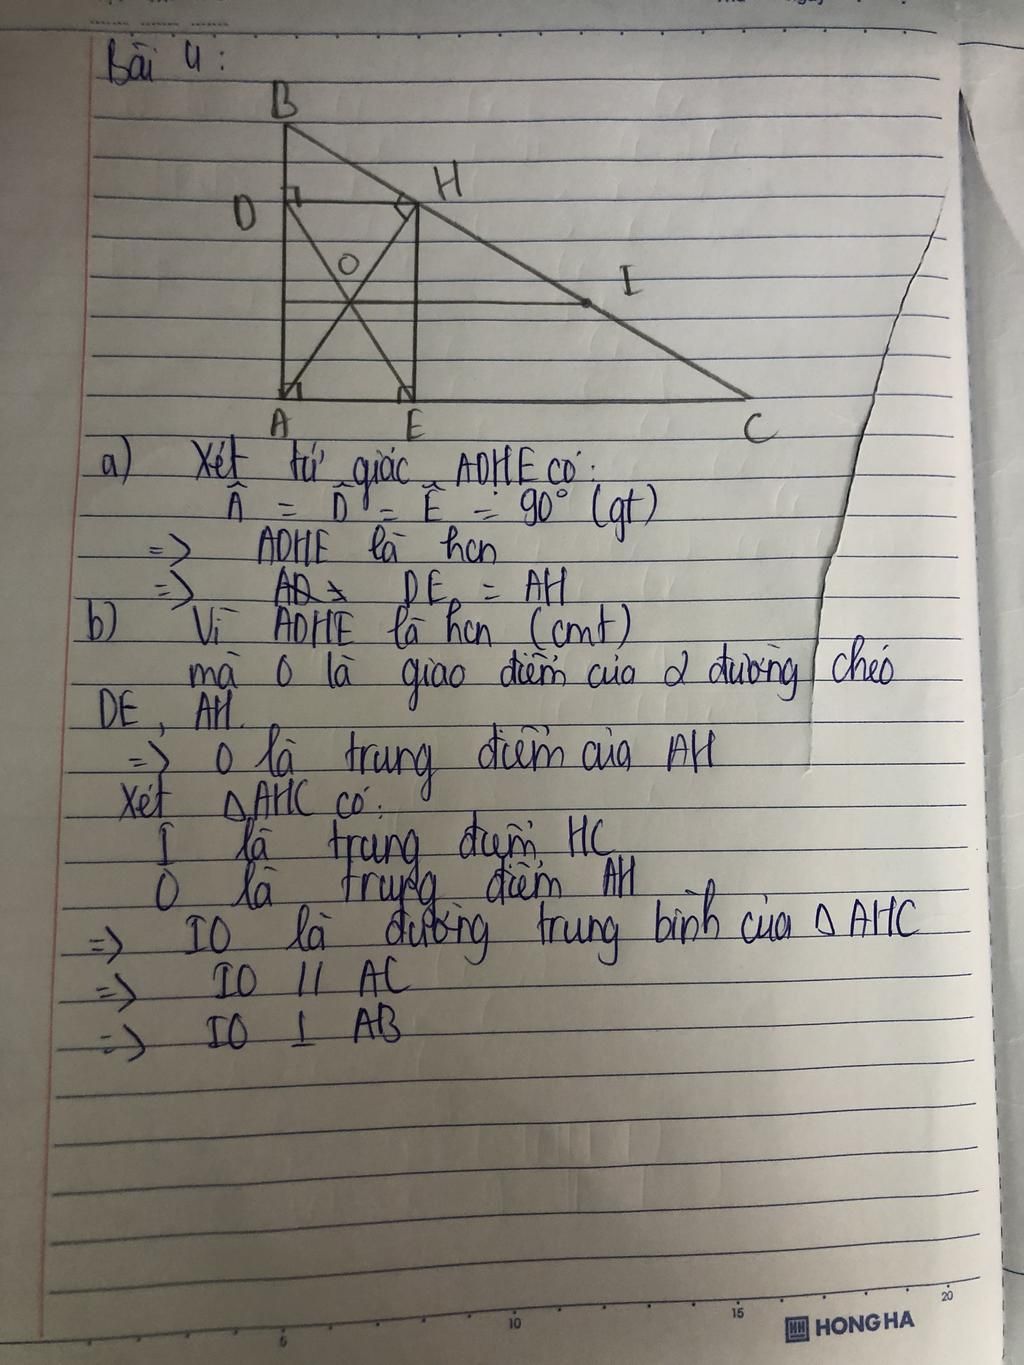 Bài 4:
B
H
D
O
I
A
E
C
a) Xét tứ giác ADHE có:
Â = D̂ = Ê = 90° (gt)
=> ADHE là hcn
=> DE = AH
b) Vì ADHE là hcn (cmt)
mà O là giao điểm của 2 đường chéo
DE, AH.
=> O là trung điểm của AH
Xét △AHC có:
I là trung điểm HC
O là trung điểm AH
=> IO là đường trung bình của △AHC
=> IO // AC
=> IO ⊥ AB
5
10
15
20
HH HONG HA